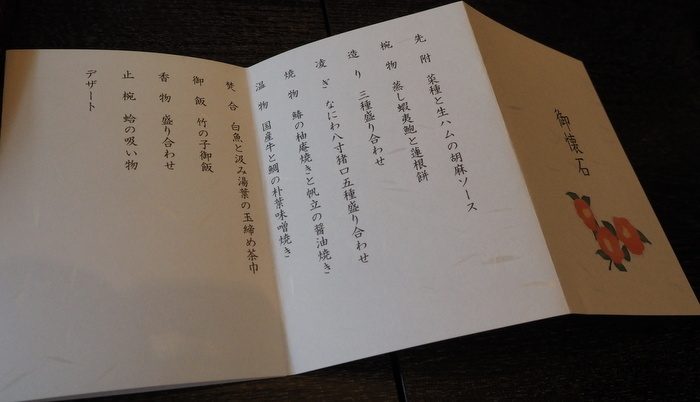 御懐石
先附 菜種と生ハムの胡麻ソース
椀物 蒸し蝦夷鮑と蓮根餅
造り 三種盛り合わせ
凌ぎ なにわ八寸猪口五種盛り合わせ
焼物 鰆の柚庵焼きと帆立の醤油焼き
温物 国産牛と鯛の朴葉味噌焼き
焚合 白魚と汲み湯葉の玉締め茶巾
御飯 竹の子御飯
香物 盛り合わせ
止椀 蛤の吸い物
デザート